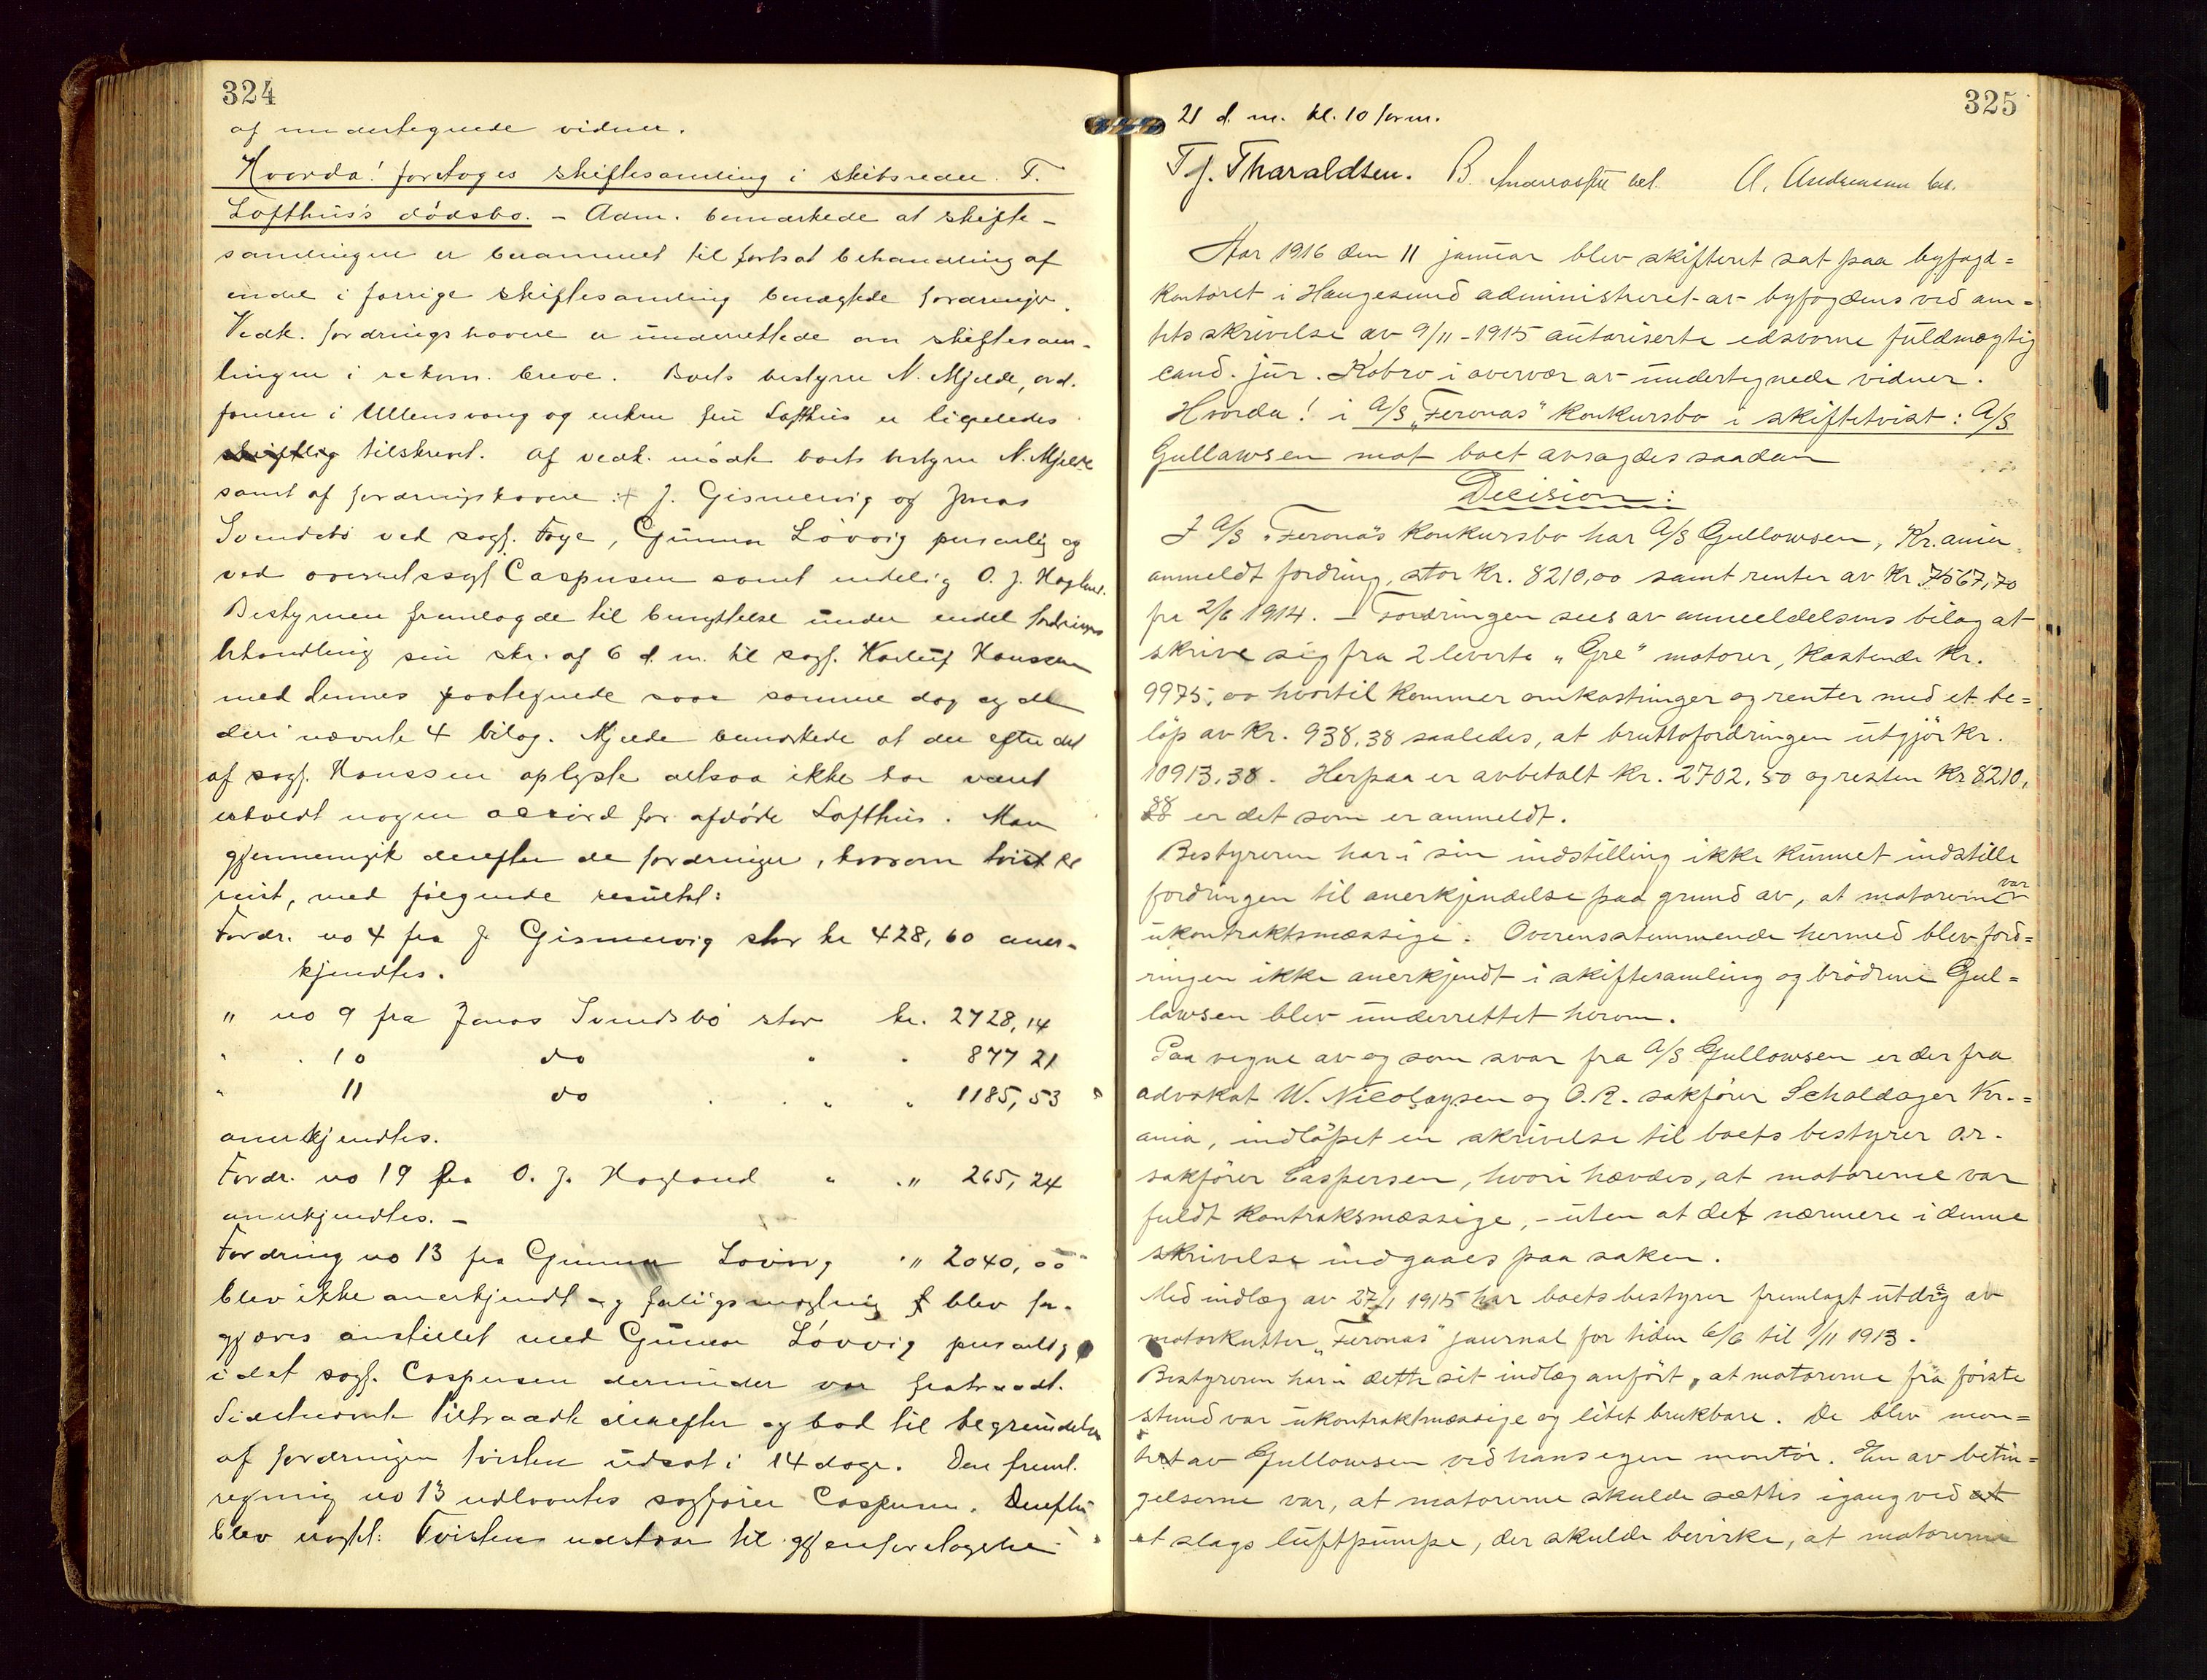 324
af undertegnede vidner.
Hvorda! foretoges skiftesamling i skibsreder T.
Lofthus's dødsbo. - Adm. bemærkede at skifte-
samlingen er berammet til fortsat behandling af
endel i forrige skiftesamling benægtede fordringer.
Vedk. fordringshavere er underrettede om skiftesam-
lingen i rekom. breve. Boets bestyrer N. Mjelde, ord.
føreren i Ullensvang og enken fru Lofthus er ligeledes
skriftlig tilskrevet. Af vedk. mødte boets bestyrer N. Mjelde
samt af fordringshavere : J. Gismervig og Jonas
Svendsbø ved sagf. Frye, Gunnar Løvvig personlig og
ved overretssagf Caspersen samt endelig O. J. Hagland.
Bestyreren fremlagde til benyttelse under endel fordringers
behandling sin skr. af 6 d. m. til sagf. Hanssen
med dennes paategnede svar samme dag og de
deri nævnte 4 bilag. Mjelde bemærkede at der efter det
af sagf. Hanssen oplyste altsaa ikke har været
istvedt nogen accord for afdøde Lofthus. Man
gjennemgik derefter de fordringer, hvorom tvist er
reist, med følgende resultat:
Fordr. no 4 fra J. Gismervig stor kr 428,60 aner-
kjendtes.
" no 9 fra Jonas Svendsbø stor kr. 2728,14
" " 10 do " " 877 21
" 11 do " " 1185,53
anerkjendtes.
Fordr. no 19 fra O. J. Hagland " " 265,24
anerkjendtes. -
Fordring no 13 fra Gunnar Løvvig " 2040,00
blev ikke anerkjendt og forligsmægling blev for-
gjæves anstillet med Gunnar Løvvig personlig,
idet sagf. Caspersen derunder var fratraadt.
Sidstnævnte tiltraadte derefter og bad til begrundelse
af fordringen tvisten udsat i 14 dage. Den freml.
regning no 13 udlaantes sagfører Caspersen. Derefter
blev vagtet: Tvisten udstaar til gjenforetagelse
325
21 d. m. kl. 10 form.
T J. Tharaldsen. B. A. Andreassen
Aar 1916 den 11 januar blev skifteret sat paa byfogd=
kontoret i Haugesund administreret av byfogdens ved am=
tets skrivelse av 9/11-1915 autoriserte edsvorne fuldmægtig
cand. jur. Kobro i overvær av undertegnede vidner.
Hvorda! i A/S "Feronas" konkursbo i skiftetvist: A/S
Gullowsen mot boet avsagdes saadan
Decision:
I A/S "Feronas konkursbo har A/S Gullowsen, Kr.ania
anmeldt fordring, stor kr. 8210,00 samt renter av kr 7567,70
fra 2/6 1914. - Fordringen sees av anmeldelsens bilag at
skrive sig fra 2 leverte "Gre" motorer, kostende kr.
9975,00 hvortil kommer omkostninger og renter med et be=
løp av kr. 938,38 saaledes, at bruttofordringen utgjør kr.
10913,38. Herpaa er avbetalt kr. 2702,50 og resten kr 8210,
88 er det som er anmeldt.
Bestyreren har i sin indstilling ikke kunnet indstille
fordringen til anerkjendelse paa grund av, at motorerne var
ukontraktsmæssige. Overensstemmende hermed blev ford=
ringen ikke anerkjendt i skiftesamling og brødrene Gul=
lowsen blev underrettet herom.
Paa vegne av og som svar fra A/S Gullowsen er der fra
advokat W. Nicolaysen og O.R. sakfører Scholdager Kr.=
ania, indløpet en skrivelse til boets bestyrer o.r.
sakfører Caspersen, hvori hævdes, at motorerne var
fuldt kontraksmæssige, - uten at det nærmere i denne
skrivelse indgaaes paa saken.
Med indlæg av 27/1 1915 har boets bestyrer fremlagt utdrag av
motorkutter "Feronas" journal for tiden 6/6 til 9/11 1913.
Bestyreren har i dette sit indlæg anført, at motorerne fra første
stund var ukontraktmæssige og litet brukbare. De blev mon=
tert av Gullowsen ved hans egen montør. En av betin=
gelserne var, at motorerne skulde sættes igang ved at
et slags luftpumpe, der skulde bevirke, at motorerne